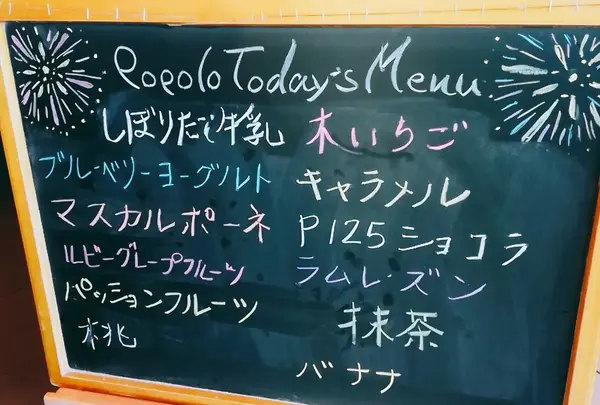 Popolo Today's Menu
しぼりたて牛乳
ブルーベリーヨーグルト
マスカルポーネ
ルビーグレープフルーツ
パッションフルーツ
桃
木いちご
キャラメル
P125ショコラ
ラムレーズン
抹茶
バナナ